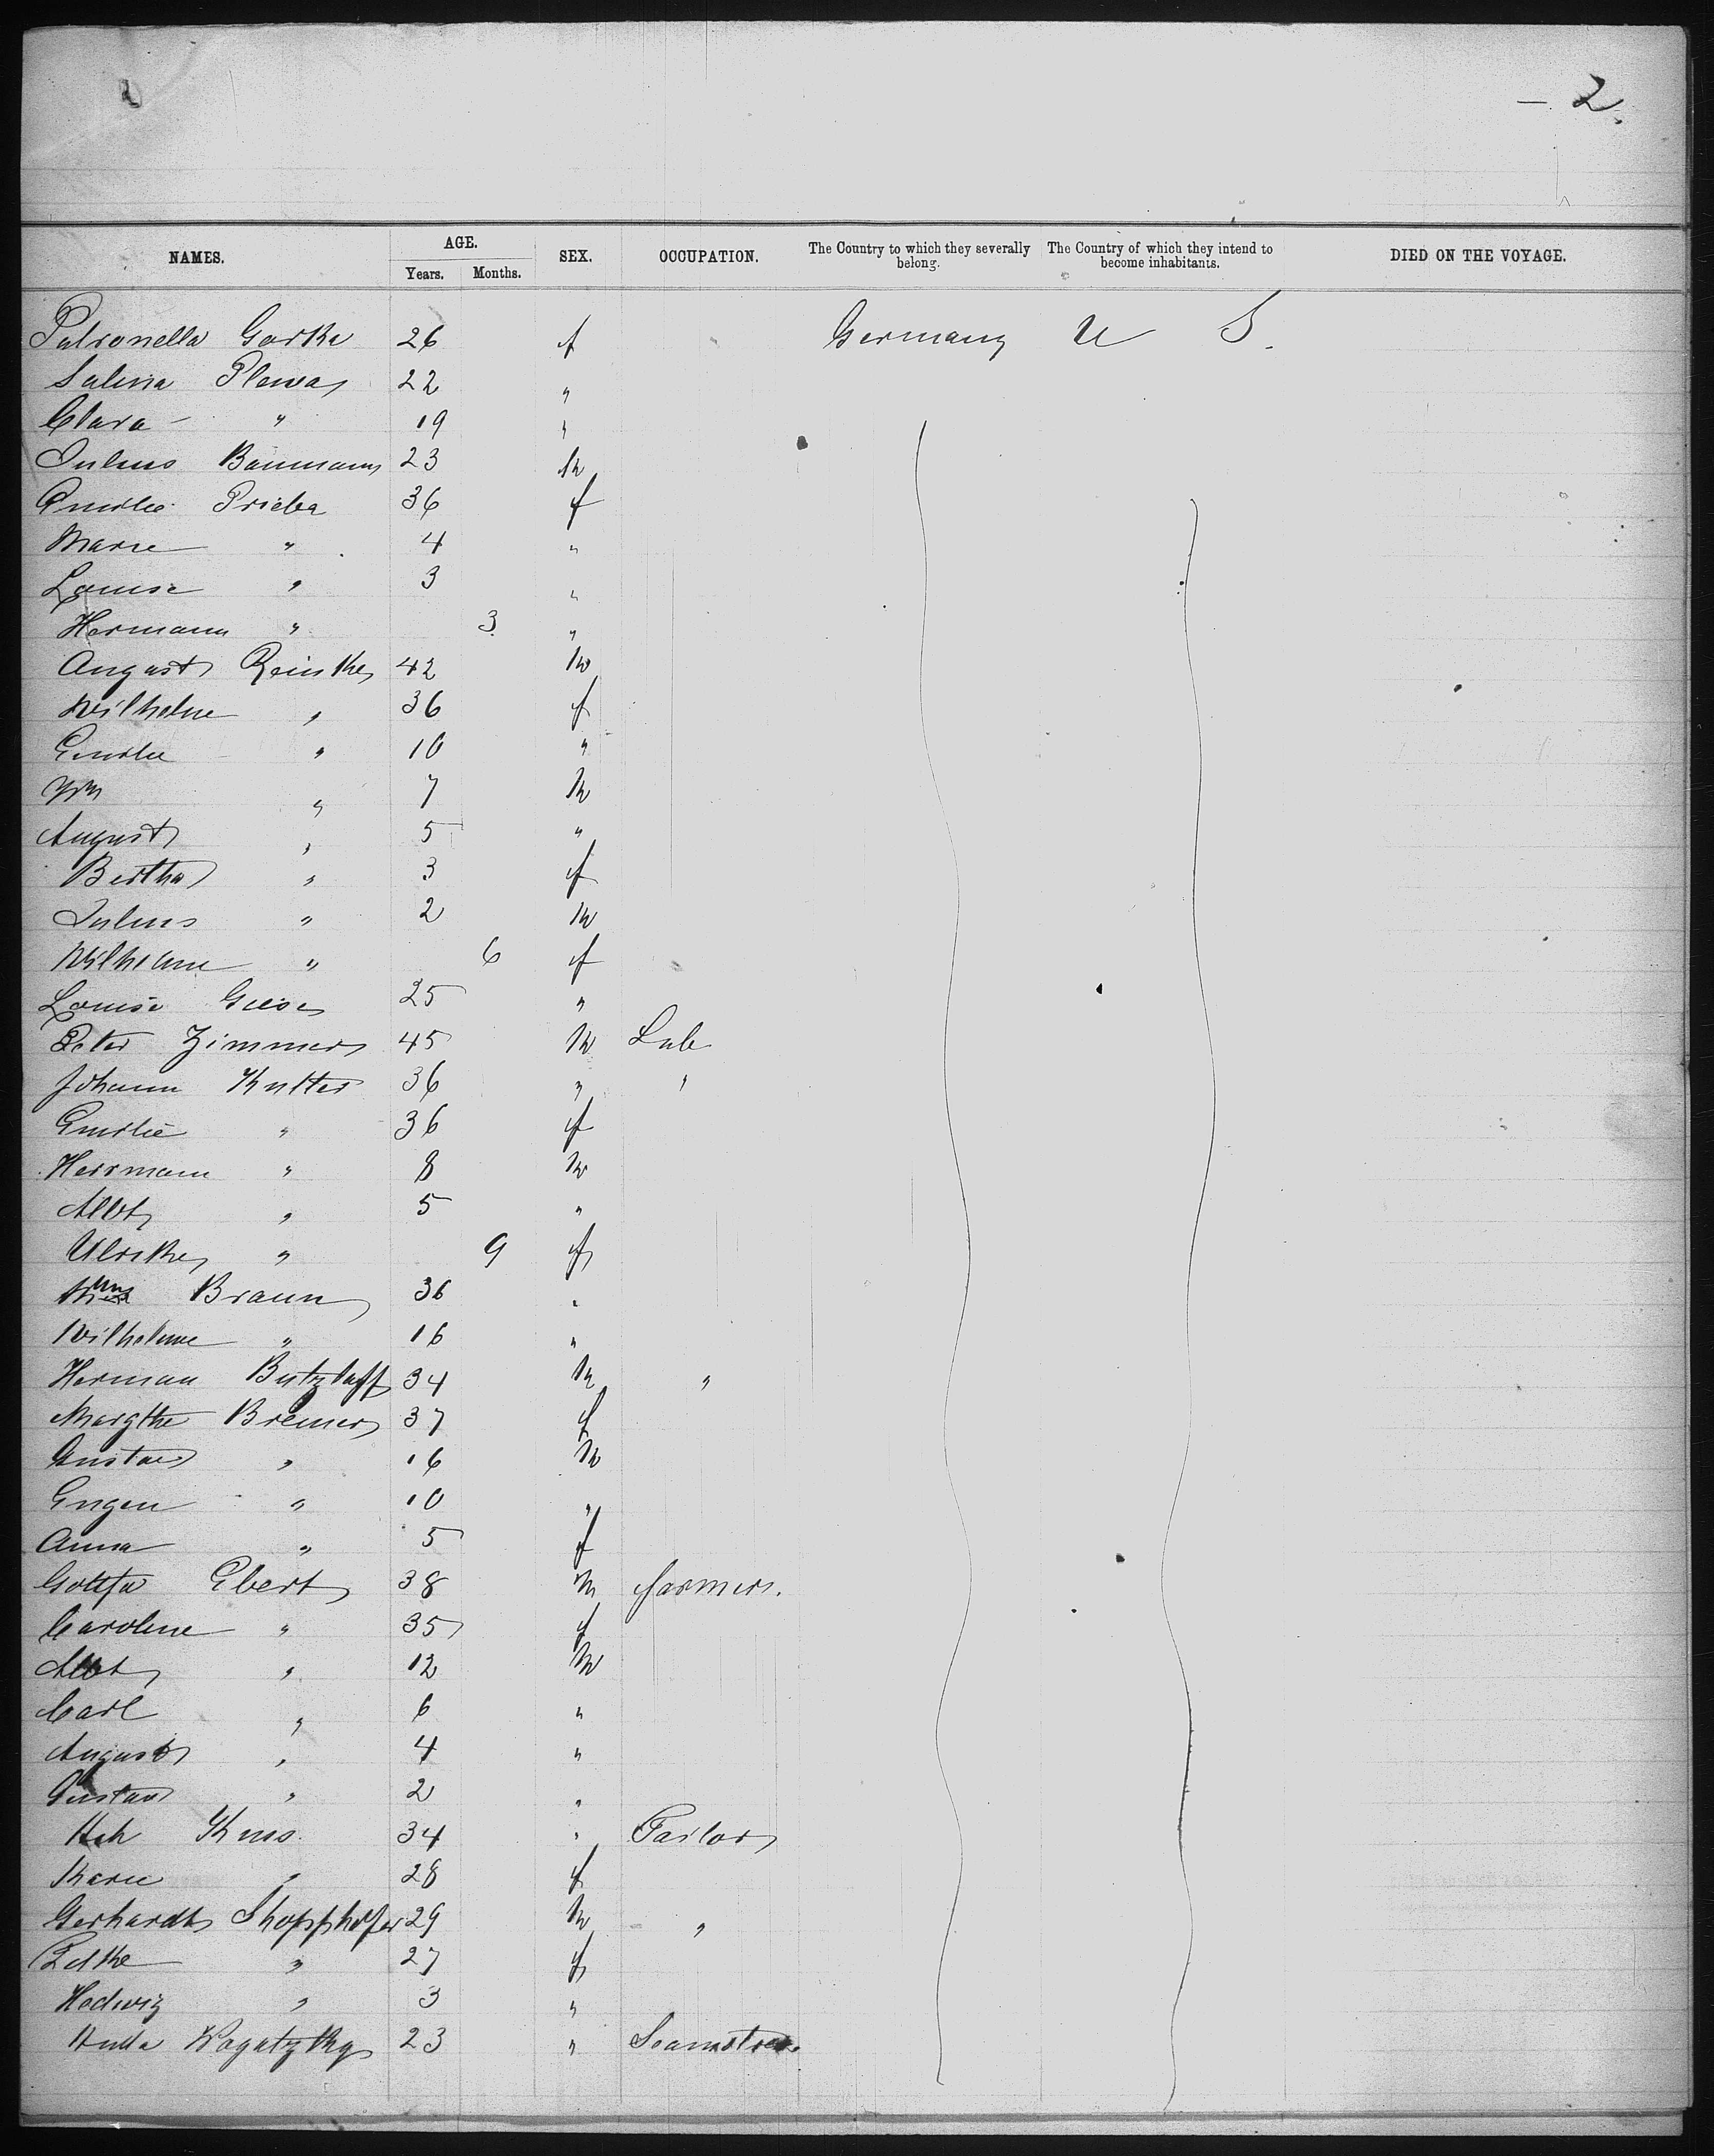 2.
NAMES. AGE. SEX. OCCUPATION. The Country to which they severally belong. The Country of which they intend to become inhabitants. DIED ON THE VOYAGE.
Years. Months.
Petronella Gorka 26 f Germany U S.
Salina Plewa 22 "
Clara " 19 "
Julius Baumann 23 m
Emilie Prieba 36 f
Marie " 4 "
Louise " 3 "
Hermann " 3 "
August Reinke 42 m
Wilhelme " 36 f
Emilie " 10 "
Wm " 7 m
August " 5 "
Bertha " 3 f
Julius " 2 m
Wilhelme " 6 f
Louise Giese 25 "
Peter Zimmer 45 m Lab
Johann Kutter 36 " "
Emilie " 36 f
Herrmann " 8 m
Albt " 5 "
Ulrike " 9 f
Braun 36 "
Wilhelme " 16 "
Herman Butzlaff 34 m "
Margthe Bremer 37 f
Gustav " 16 m
Eugen " 10 "
Anna " 5 f
Gottfr Ebert 38 m farmer.
Caroline " 35 f
Albt " 12 m
Carl " 6 "
August " 4 "
Gustav " 2 "
Hch Kuss 34 " Tailor
Marie " 28 f
Gerhardt Shopphofer 29 m "
" 27 f
Hedwig " 3 "
Hulda Wogatzky 23 " Seamstress